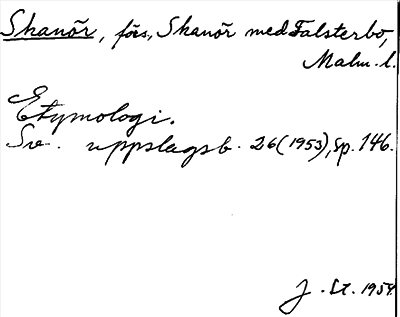 Skanör, förs., Skanör med Falsterbo,
Malm. l.
Etymologi.
Sv. uppslagsb. 26 (1953), sp. 146.
J. St. 1954